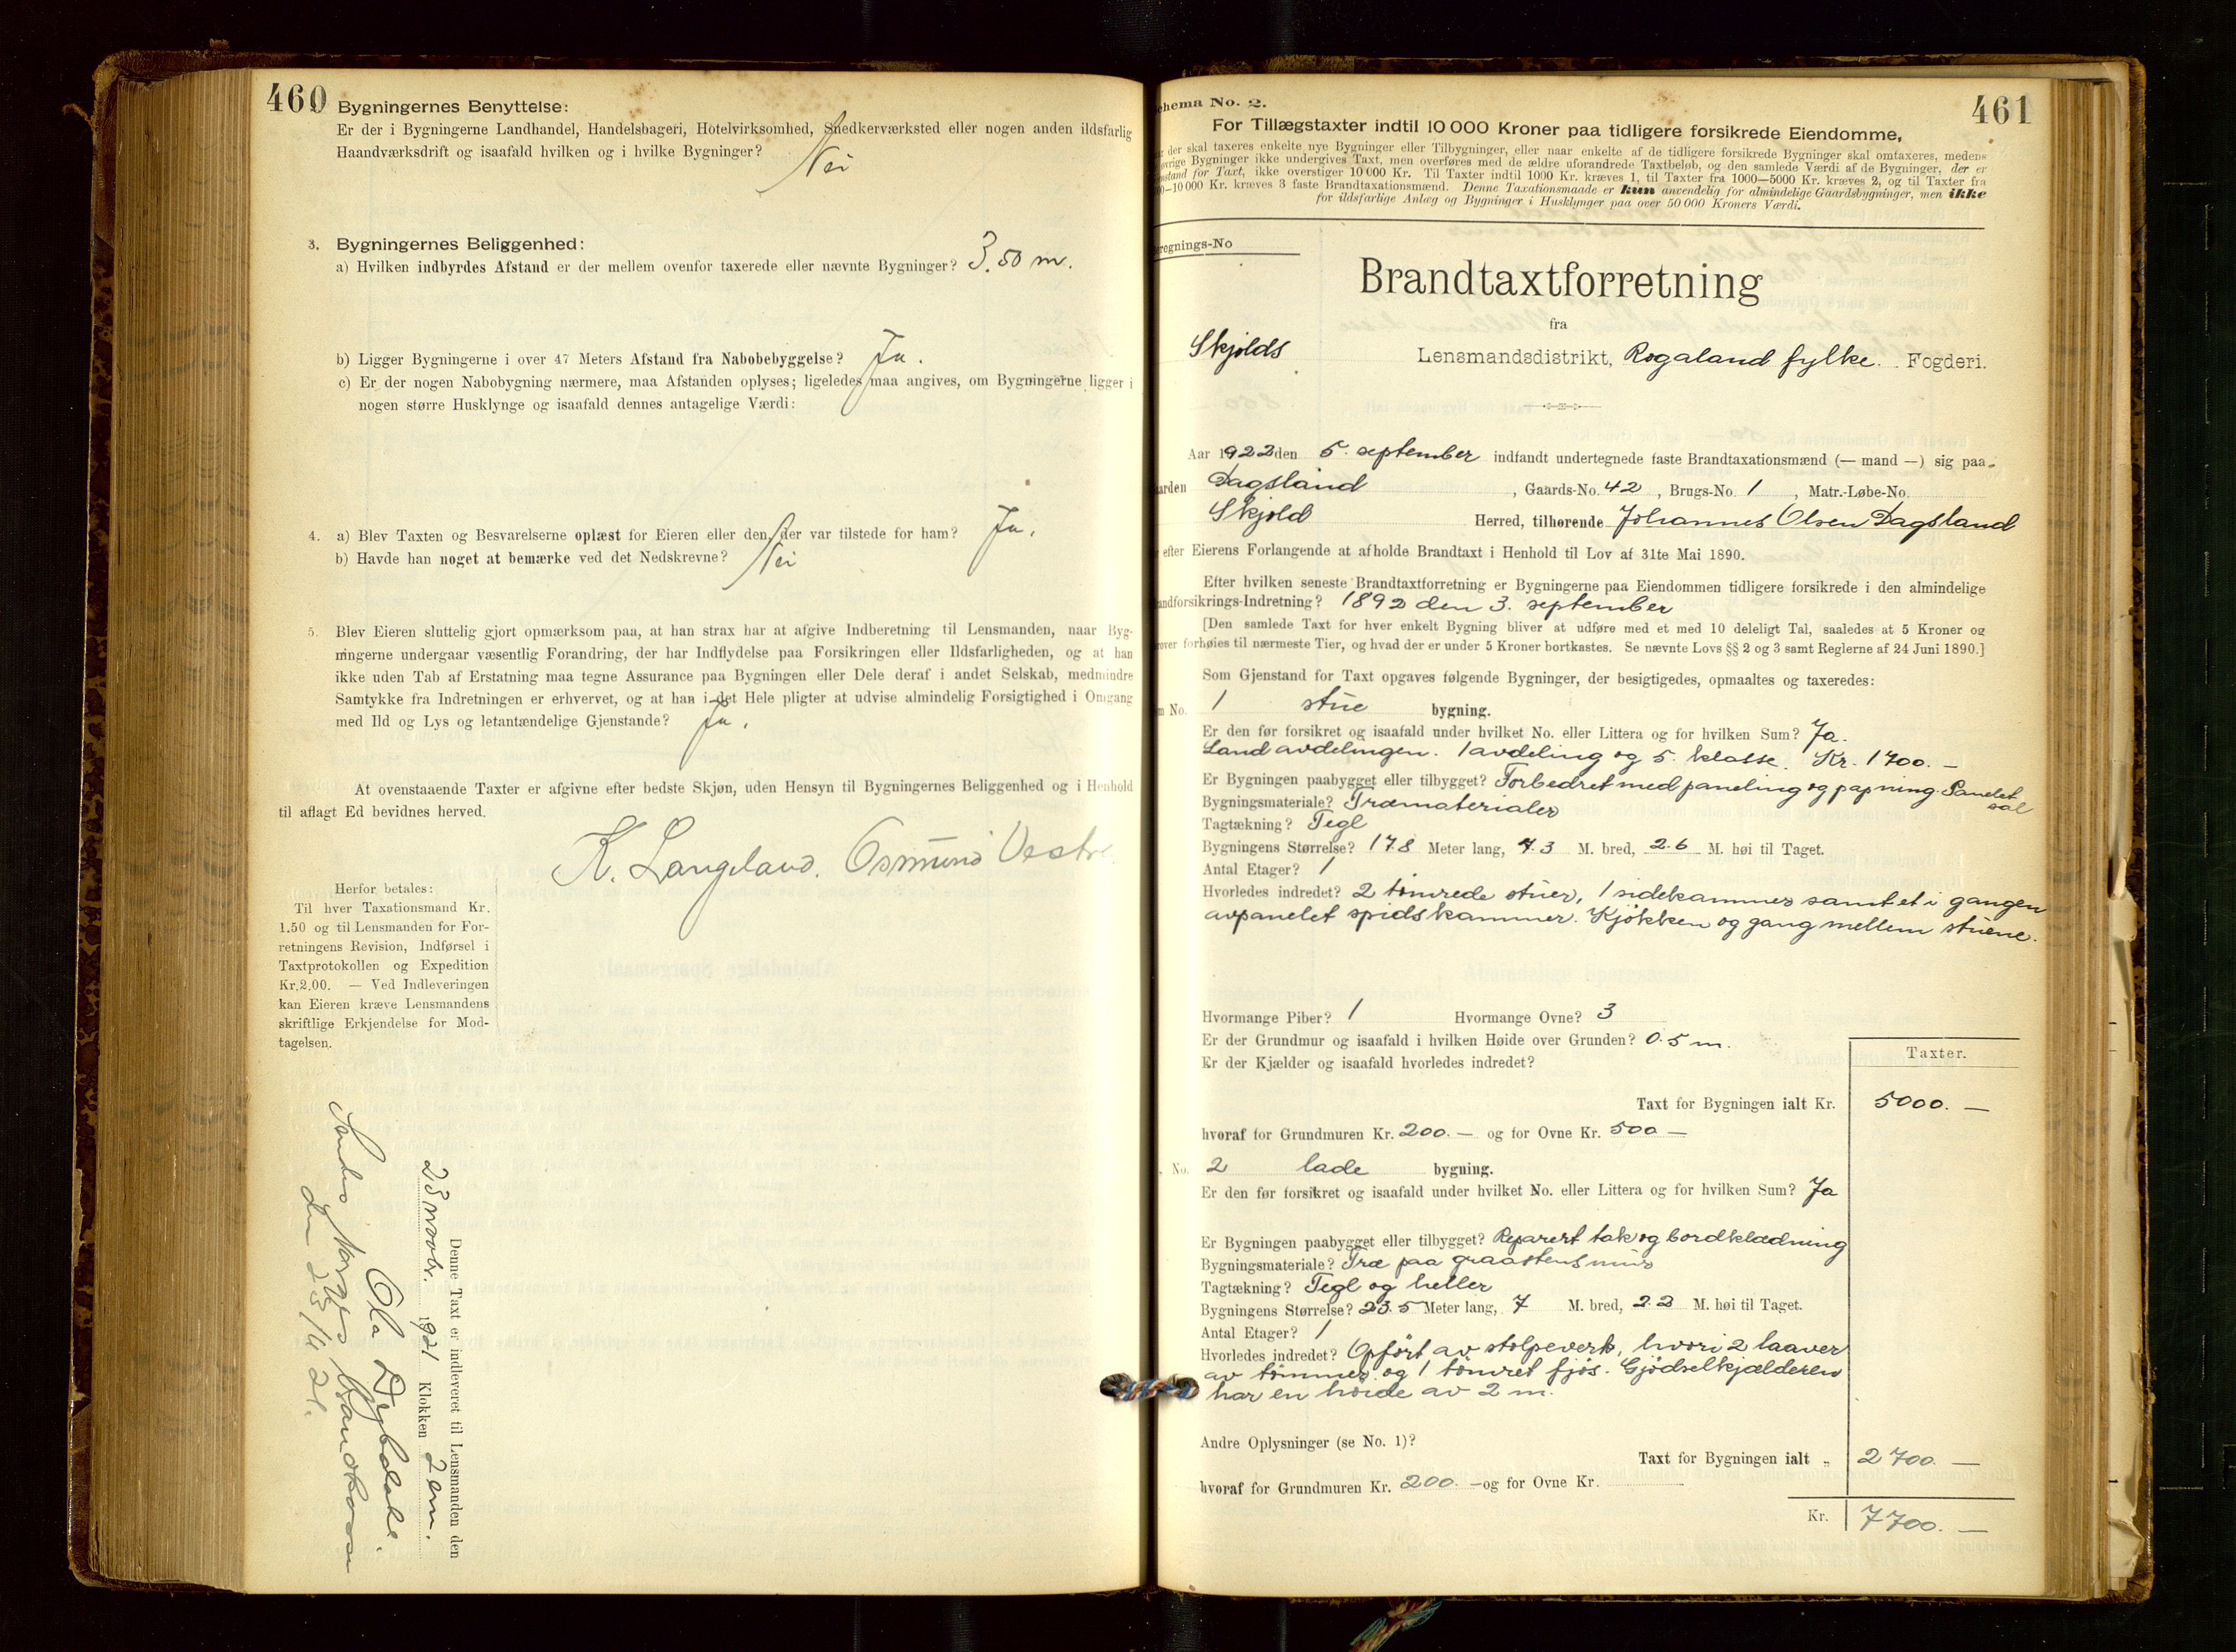 460
Bygningernes Benyttelse:
Er der i Bygningerne Landhandel, Handelsbageri, Hotelvirksomhed, Snedkerværksted eller nogen anden ildsfarlig
Haandværksdrift og isaafald hvilken og i hvilke Bygninger? Nei
3. Bygningernes Beliggenhed:
a) Hvilken indbyrdes Afstand er der mellem ovenfor taxerede eller nævnte Bygninger? 3,50 m.
b) Ligger Bygningerne i over 47 Meters Afstand fra Nabobebyggelse? Ja.
c) Er der nogen Nabobygning nærmere, maa Afstanden oplyses; ligeledes maa angives, om Bygningerne ligger i
nogen større Husklynge og isaafald dennes antagelige Værdi:
4. a) Blev Taxten og Besvarelserne oplæst for Eieren eller den, der var tilstede for ham? Ja.
b) Havde han noget at bemærke ved det Nedskrevne? Nei
5. Blev Eieren sluttelig gjort opmærksom paa, at han strax har at afgive Indberetning til Lensmanden, naar Byg-
ningerne undergaar væsentlig Forandring, der har Indflydelse paa Forsikringen eller Ildsfarligheden, og at han
ikke uden Tab af Erstatning maa tegne Assurance paa Bygningen eller Dele deraf i andet Selskab, medmindre
Samtykke fra Indretningen er erhvervet, og at han i det Hele pligter at udvise almindelig Forsigtighed i Omgang
med Ild og Lys og letantændelige Gjenstande? Ja.
At ovenstaaende Taxter er afgivne efter bedste Skjøn, uden Hensyn til Bygningernes Beliggenhed og i Henhold
til aflagt Ed bevidnes herved.
K. Langeland. Osmund Vestre
Herfor betales:
Til hver Taxationsmand Kr.
1.50 og til Lensmanden for For-
retningens Revision, Indførsel i
Taxtprotokollen og Expedition
Kr.2.00. — Ved Indleveringen
kan Eieren kræve Lensmandens
skriftlige Erkjendelse for Mod-
tagelsen.
Denne Taxt er indleveret til Lensmanden den
23 novbr. 1921 Klokken 2 em.
Ola
Sendes Norges
den 23/11 21.
461
Schema No. 2.
For Tillægstaxter indtil 10 000 Kroner paa tidligere forsikrede Eiendomme,
der skal taxeres enkelte nye Bygninger eller Tilbygninger, eller naar enkelte af de tidligere forsikrede Bygninger skal omtaxeres, medens
øvrige Bygninger ikke undergives Taxt, men overføres med de ældre uforandrede Taxtbeløb, og den samlede Værdi af de Bygninger, der er
Gjenstand for Taxt, ikke overstiger 10 000 Kr. Til Taxter indtil 1000 Kr. kræves 1, til Taxter fra 1000—5000 Kr. kræves 2, og til Taxter fra
—10 000 Kr. kræves 3 faste Brandtaxationsmænd. Denne Taxationsmaade er kun anvendelig for almindelige Gaardsbygninger, men ikke
for ildsfarlige Anlæg og Bygninger i Husklynger paa over 50 000 Kroners Værdi.
regnings-No
Brandtaxtforretning
fra
Skjolds Lensmandsdistrikt, Rogaland fylke. Fogderi.
Aar 1922 den 5. september indfandt undertegnede faste Brandtaxationsmænd (— mand —) sig paa
arden Dagsland, Gaards-No. 42, Brugs-No. 1, Matr.-Løbe-No.
Skjold Herred, tilhørende Johannes Olsen Dagsland
efter Eierens Forlangende at afholde Brandtaxt i Henhold til Lov af 31te Mai 1890.
Efter hvilken seneste Brandtaxtforretning er Bygningerne paa Eiendommen tidligere forsikrede i den almindelige
andforsikrings-Indretning? 1892 den 3. september
[Den samlede Taxt for hver enkelt Bygning bliver at udføre med et med 10 deleligt Tal, saaledes at 5 Kroner og
over forhøies til nærmeste Tier, og hvad der er under 5 Kroner bortkastes. Se nævnte Lovs §§ 2 og 3 samt Reglerne af 24 Juni 1890.]
Som Gjenstand for Taxt opgaves følgende Bygninger, der besigtigedes, opmaaltes og taxeredes:
No. 1 stue bygning.
Er den før forsikret og isaafald under hvilket No. eller Littera og for hvilken Sum? Ja.
Landavdelingen. 1 avdeling og 5. klasse. Kr. 1700.—
Er Bygningen paabygget eller tilbygget? Forbedret med paneling og papning. Panelet sal
Bygningsmateriale? Træmaterialer
Tagtækning? Tegl
Bygningens Størrelse? 17.8 Meter lang, 7.3 M. bred, 2.6 M. høi til Taget.
Antal Etager? 1
Hvorledes indredet? 2 tømrede stuer, 1 sidekammer samt et i gangen
avpanelet spidskammer. Kjøkken og gang mellem stuene.
Hvormange Piber? 1 Hvormange Ovne? 3
Er der Grundmur og isaafald i hvilken Høide over Grunden? 0.5 m.
Er der Kjælder og isaafald hvorledes indredet?
Taxter.
Taxt for Bygningen ialt Kr. 5000.—
hvoraf for Grundmuren Kr. 200.— og for Ovne Kr. 500—
No. 2 lade bygning.
Er den før forsikret og isaafald under hvilket No. eller Littera og for hvilken Sum? Ja
Er Bygningen paabygget eller tilbygget? Reparert tak og bordklædning
Bygningsmateriale? Træ paa graastensmur
Tagtækning? Tegl og heller
Bygningens Størrelse? 23.5 Meter lang, 7 M. bred, 2.2 M. høi til Taget.
Antal Etager? 1
Hvorledes indredet? Opført av stolpeverk, hvori 2 laaver
av tømmer og 1 tømret fjøs. Gjødselkjælderen
har en høide av 2 m.
Andre Oplysninger (se No. 1)?
Taxt for Bygningen ialt „ 2700.—
hvoraf for Grundmuren Kr. 200.— og for Ovne Kr.
Kr. 7700.—